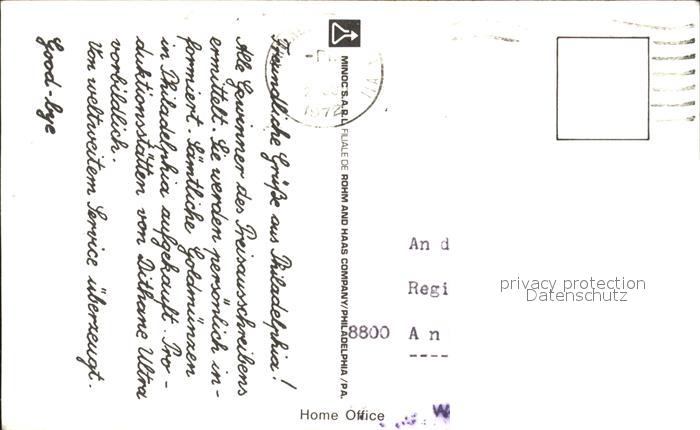 Freundliche Grüße aus Philadelphia!
Alle Gewinner des Preisausschreibens
ermittelt. Sie werden persönlich in-
formiert. Sämtliche Goldmünzen
in Philadelphia aufgekauft. Pro-
duktionsstätten von Dithane Ultra
vorbildlich.
Von weltweitem Service überzeugt.
Good-bye
MINOC S.A.R.L. FILIALE DE ROHM AND HAAS COMPANY/PHILADELPHIA/PA.
1972
An d
Regi
8800 An
privacy protection
Datenschutz
Home Office
W